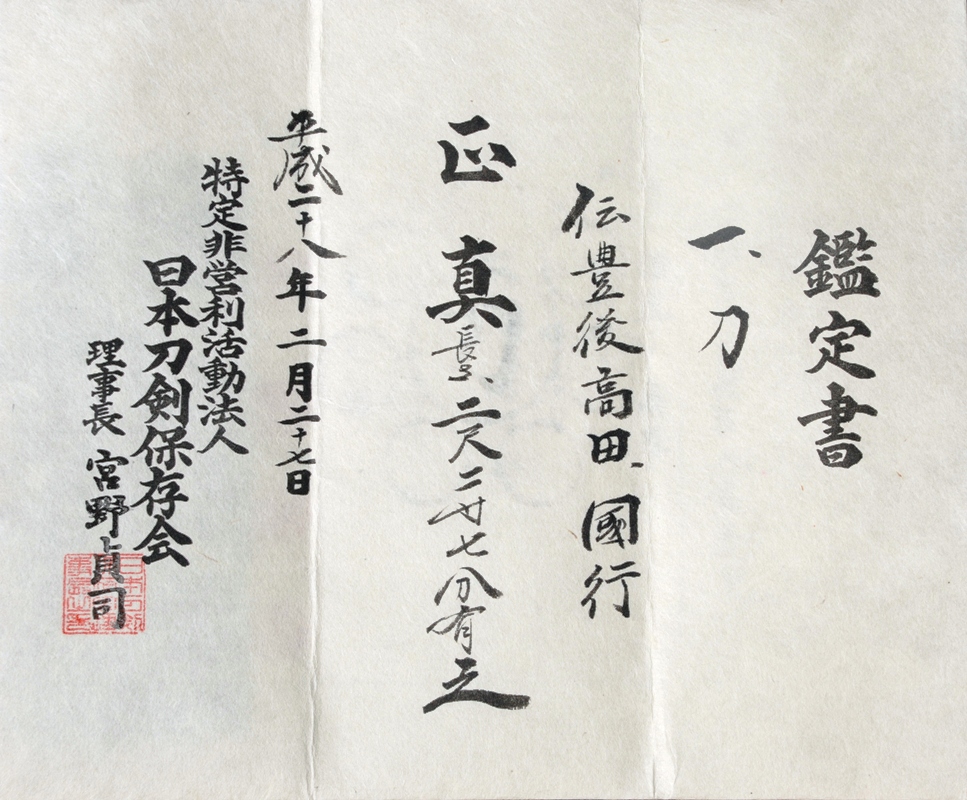 鑑定書
一、刀
伝豊後高田、國行
正真長さ、二尺二寸七分有之
平成二十八年二月二十七日
特定非営利活動法人
日本刀剣保存会
理事長 宮野貞司